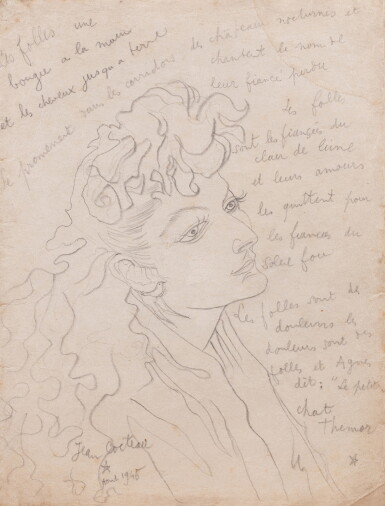 Les folles une
bougie a la main
et les cheveux jusqu'a terre
se promenent dans les corridors
des chapeaux nocturnes et
chantent le nom de
leur fiancé perdu
Les folles
sont les fiancées du
clair de lune
et leurs amours
les quittent pour
les fiancées du
soleil fou
Les folles sont de
douleurs les
douleurs sont des
folles et Agnes
dit : "Le petit
chat
Jean Cocteau
1945